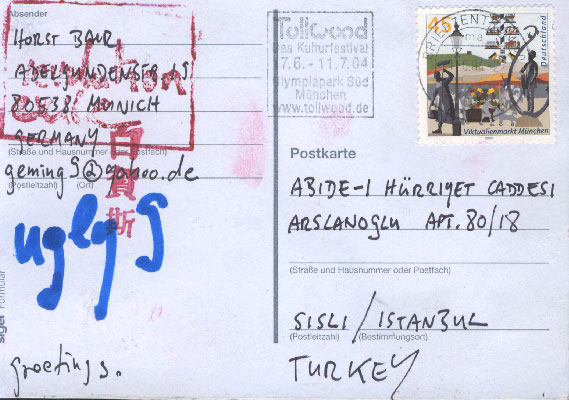 Absender
HORST BAUR
ADELGUNDENSTR. 19
80538 MUNICH
GERMANY
(Straße und Hausnummer oder Postfach)
geming9@yahoo.de
(Postleitzahl) (Ort)
百賓斯
ugly 9
greetings.
sigel Formular
Tollwood
Das Kulturfestival
7.6. - 11.7.04
Olympiapark Süd
München
www.tollwood.de
45
Deutschland
Viktualienmarkt München
Postkarte
ABIDE-I HÜRRIYET CADDESI
ARSLANOGLU APT. 80/18
(Straße und Hausnummer oder Postfach)
SISLI / ISTANBUL
(Postleitzahl) (Bestimmungsort)
TURKEY